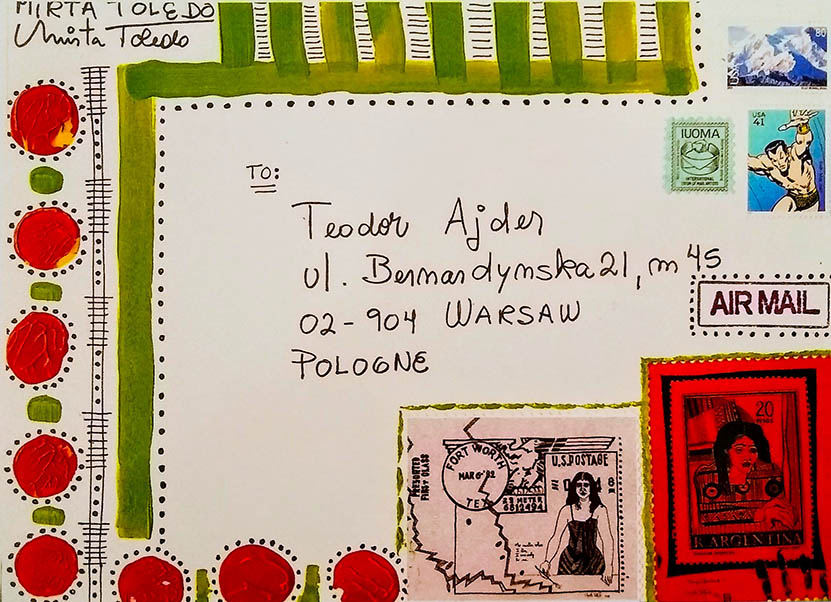 MIRTA TOLEDO
Mirta Toledo
80
USA
41
IUOMA
INTERNATIONAL
UNION OF MAIL ARTISTS
TO:
Teodor Ajder
ul. Bernardynska 21, m 45
02-904 WARSAW
POLOGNE
AIR MAIL
PRESORTED
FIRST CLASS
FORT WORTH
MAR 6 '92
TEX
U.S. POSTAGE
22 METER
6812494
20
PESOS
R. ARGENTINA